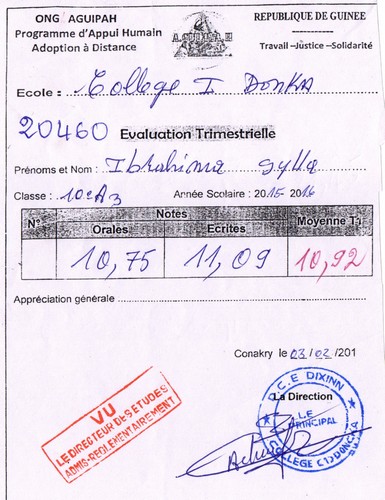 ONG AGUIPAH
REPUBLIQUE DE GUINEE
Programme d'Appui Humain
Adoption à Distance
Travail –Justice –Solidarité
Ecole : College I DonKA
20460 Evaluation Trimestrielle
Prénoms et Nom : Ibrahima Sylla
Classe : 10eA3 Année Scolaire : 2015 2016
N° Notes Moyenne T1
Orales Ecrites
10,75 11,09 10,92
Appréciation générale
Conakry le 03/02/201
VU
LE DIRECTEUR DES ETUDES
ADMIS-REGLEMENTAIREMENT
C.E DIXINN
La Direction
PRINCIPAL
COLLEGE (1) DONKA